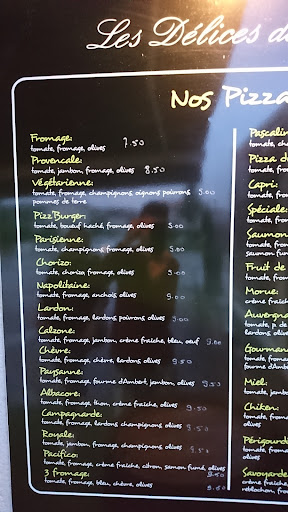 Les Délices d
Nos Pizza
Fromage: 7.50
tomate, fromage, olives
Provencale:
tomate, jambon, fromage, olives 8.50
Végétarienne:
tomate, fromage, champignons, oignons poivrons, 9.00
pommes de terre
Pizz'Burger:
tomate, boeuf haché, fromage, olives 9.00
Parisienne:
tomate, champignons fromage, olives 9.00
Chorizo:
tomate, chorizo fromage, olives 9.00
Napolitaine:
tomate, fromage, anchois, olives 9.00
Lardon:
tomate, fromage, lardons, poivrons olives 9.00
Calzone:
tomate, fromage, jambon, crème fraîche, bleu, oeuf 9.00
Chèvre:
tomate, fromage, chèvre, lardons, olives 9.50
Paysanne:
tomate, fromage, fourme d'Ambert, jambon, olives 9.50
Albacore:
tomate, fromage, thon, crème fraîche, olives 9.50
Campagnarde:
tomate, fromage, lardons champignons olives 9.50
Royale:
tomate, jambon, fromage, champignons, olives 9.50
Pacifico:
tomate, fromage, crème fraîche, citron, saumon fumé, olives 9.50
3 fromage:
tomate, fromage, bleu, chèvre, olives 9.50
Pascalin
tomate, cha
Pizza d
tomate, fro
Capri:
tomate, fro
Spéciale:
tomate, fro
Saumon
tomate, fro
saumon fum
Fruit de
tomate, fro
Morue:
crème fraîch
Auvergna
tomate, p. de
lardons, olive
Gourman
tomate, fro
Miel:
tomate, cham
Chiken:
tomate, fro
Périgourdi
tomate, fro
Savoyarde
crème fraîche
reblochon, fro